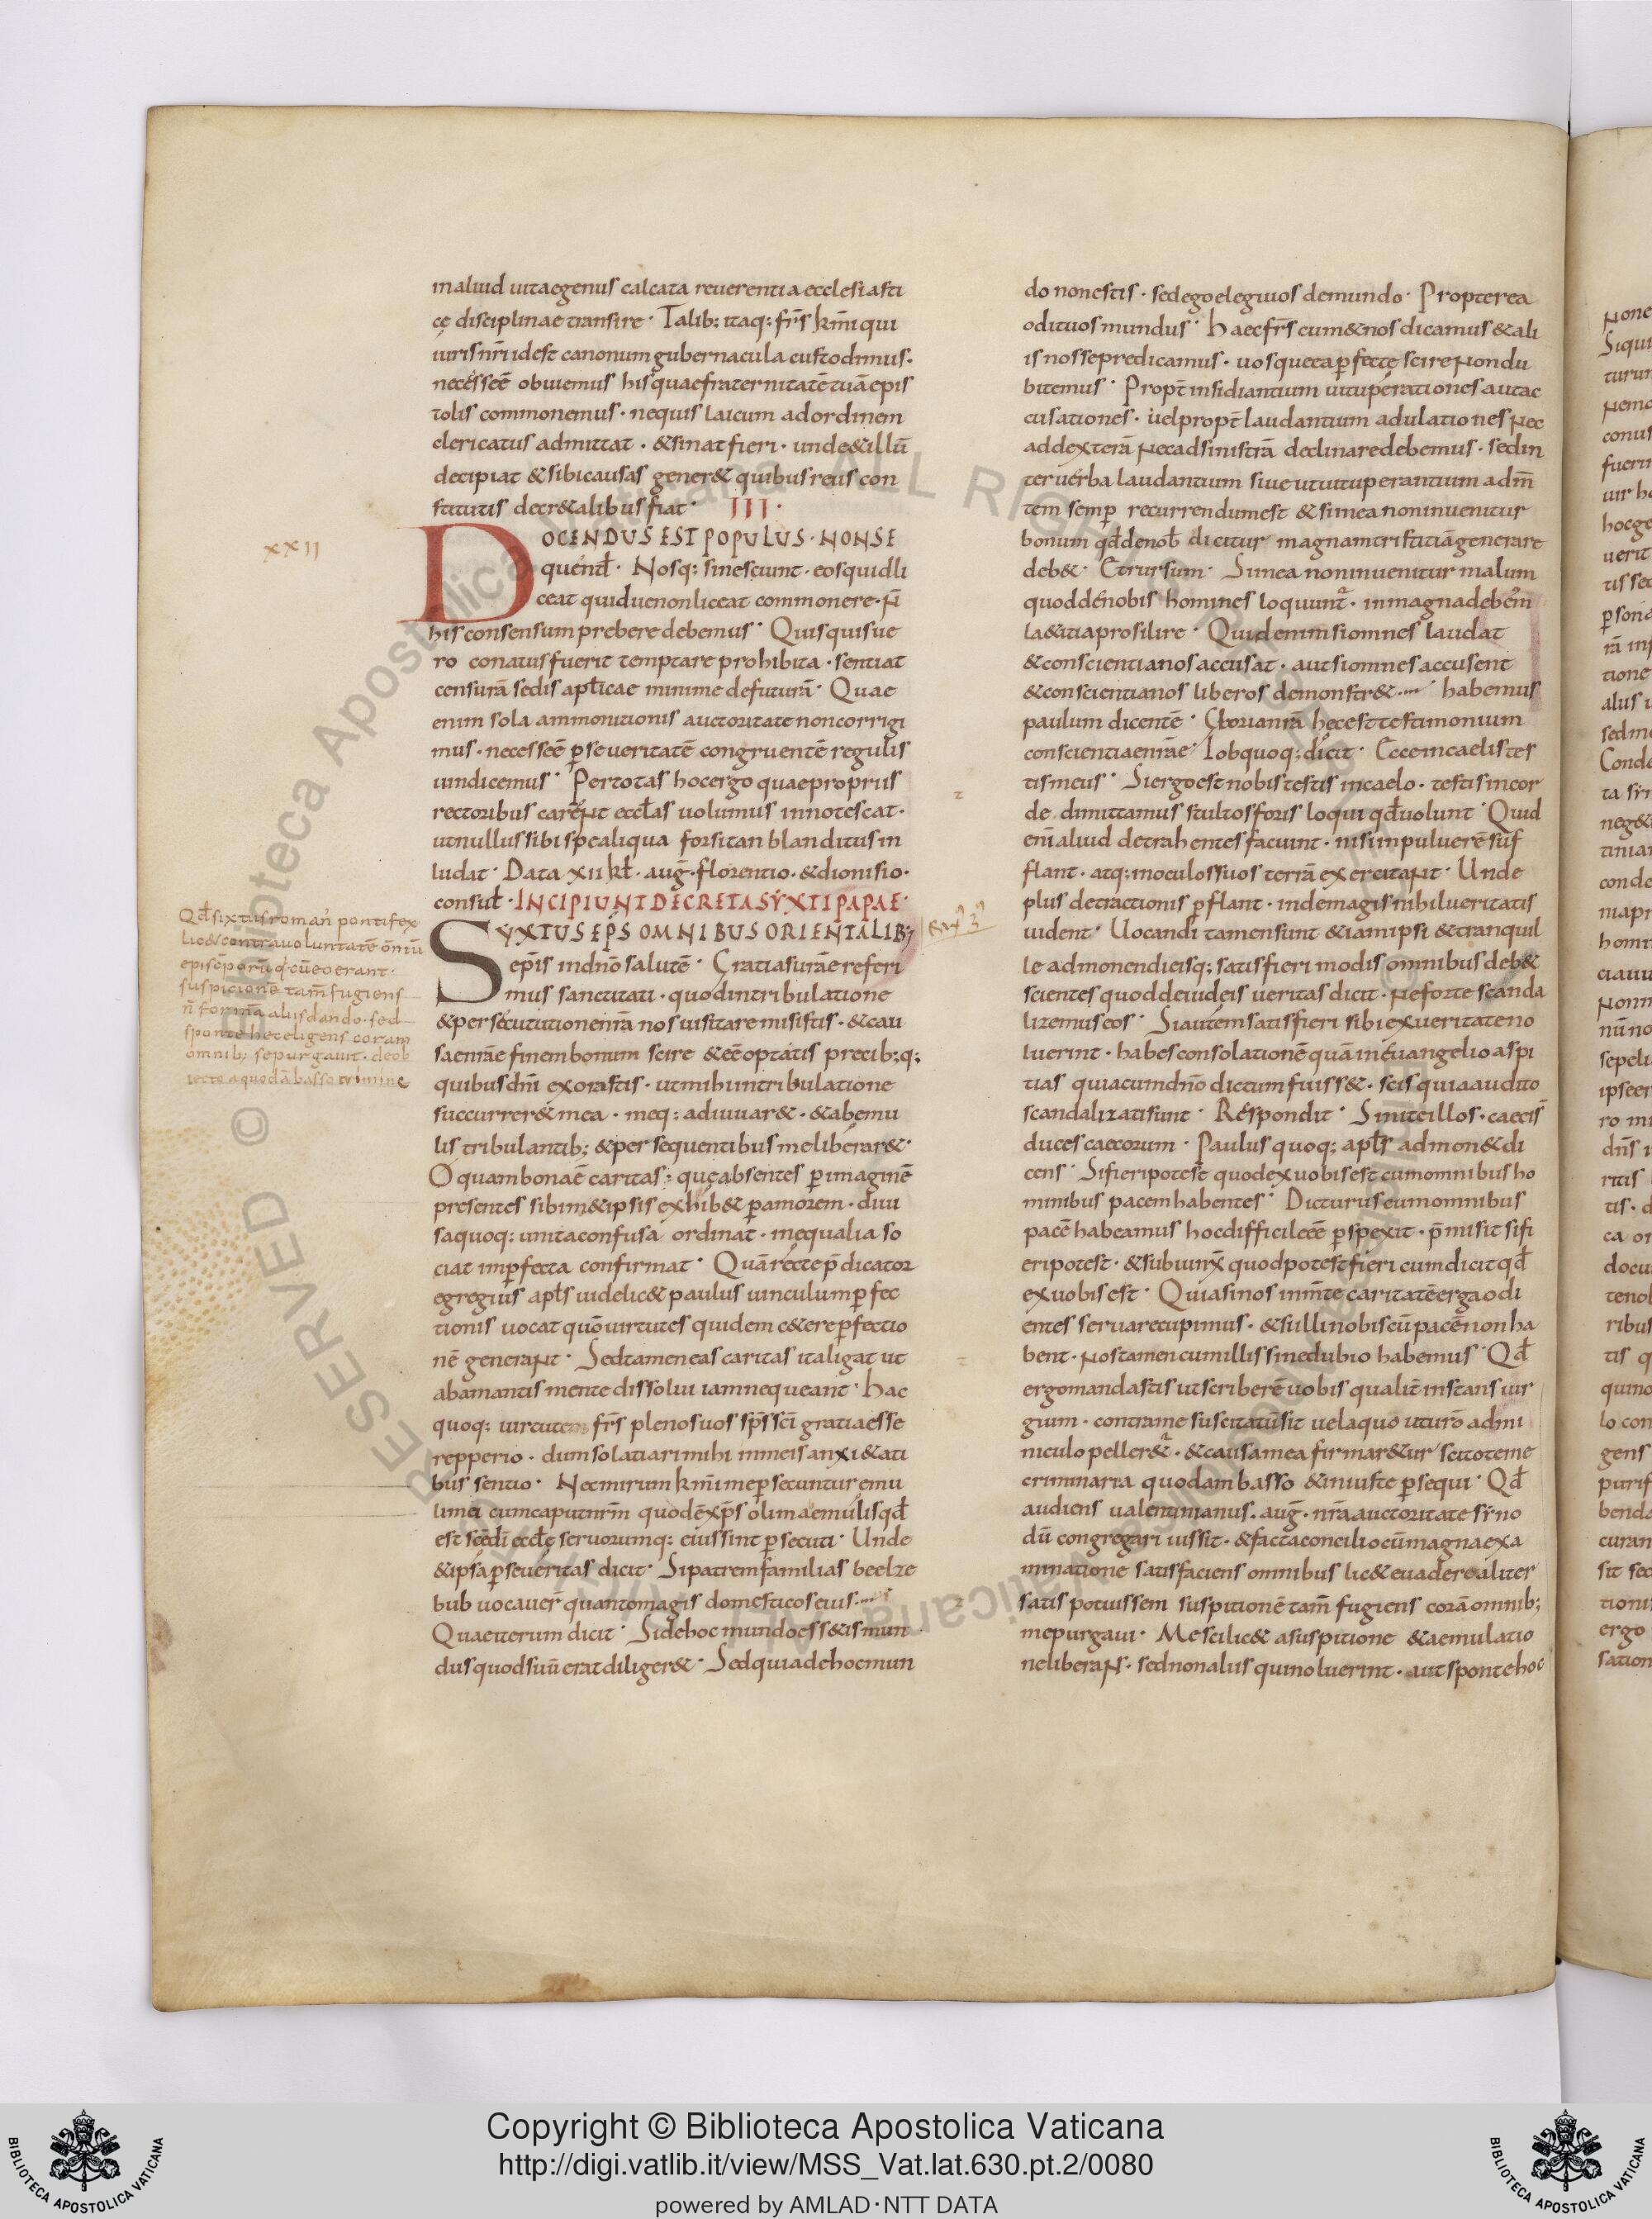 maluid uitaegenus calcata reuerentia ecclesiasti
cę disciplinae transire · Talib; itaq; frs̄ km̄i qui
iuris nr̄i idest canonum gubernacula custodimus ·
necesseē obuiemus his quae fraternitatē tuā epis
tolis commonemus · nequis laicum ad ordinem
clericatus admittat · & sinat fieri · unde & illū
decipiat & sibi causas gener& quibus reus con
stitutis decr&alibus fiat · III ·
DOCENDUS EST POPULUS · NON SE
quend̄ · Nosq; si nesciunt · eos quid li
ceat quid ue non liceat commonere · n̄
his consensum prebere debemus · Quisquis ue
ro conatus fuerit temptare prohibita · sentiat
censurā sedis apl̄icae minime defuturā · Quae
enim sola ammonitionis auctoritate non corrigi
mus · necesseē p seueritatē congruentē regulis
uindicemus · Per totas hoc ergo quae propriis
rectoribus carent eccl̄as uolumus innotescat ·
ut nullus sibi spe aliqua forsitan blanditus in
ludat · Data xii kl̄ · auḡ · florentio · & dionisio ·
consul̄ · INCIPIUNT DECRETA SYXTI PAPAE ·
SYXTUS EPS̄ OMNIBUS ORIENTALIB;
epis̄ in dn̄o salutē · Gratias urāe referi
mus sanctitati · quod in tribulatione
& persecutitione nrā nos uisitare misistis · & cau
sae nrāe finem bonum scire & eē optatis precib;q;
quibus dn̄i exorastis · ut mihi in tribulatione
succurrer& mea · meq; adiuuar& · & ab emu
lis tribulantib; & persequentibus me liberar& ·
O quam bona ē caritas · quę absentes p imaginē
presentes sibim&ipsis exhib& p amorem · diui
sa quoq; unita confusa ordinat · inequalia so
ciat imp̄fecta confirmat · Quā recte p̄dicator
egregius apl̄s uidelic& paulus uinculum p̄fec
tionis uocat quō uirtutes quidem c&ere p̄fectio
nē generant · Sed tamen eas caritas ita ligat ut
ab amantis mente dissolui iam nequeant · hac
quoq; uirtutem frs̄ plenos uos sps̄ sc̄i gratia esse
repperio · dum solatiari mihi in meis anxi&ati
bus sentio · Nec mirum km̄i me p̄secuntur emu
li mei cum caput nrm̄ quod ē xps̄ olim aemulis qd̄
est sc̄ē dī eccl̄ę seruorumq; eius sint p̄secuti · Unde
& ipsa p se ueritas dicit · Si patrem familias beelze
bub uocauer̄ quanto magis domesticos eius ·
Quae iterum dicit · Si de hoc mundo ess&is mun
dus quod suū erat diliger& · Sed quia de hoc mun
xxii
Qd̄ sixtus roman̄ pontifex
lic& contra uoluntatē omniū
episcoporū q̄ cū eo erant ·
suspicionē tam̄ fugiens
n̄ formā aliis dando · sed
sponte h̄ eteligens coram
omnib; se purgauit · de ob
iecto a quodā basso crimine
do non estis · sed ego elegi uos de mundo · Propterea
odit uos mundus · Haec frs̄ cum & nos dicamus & ali
is nos se predicamus · uosque ea p̄fecte scire non du
bitemus · Propt̄ insidiantium uituperationes aut ac
cusationes · uel propt̄ laudantium adulationes nec
ad dexterā nec ad sinistrā declinare debemus · sed in
ter uerba laudantium siue uituperantium ad m̄
tem semp̄ recurrendum est & si in ea non inuenitur
bonum qd̄ de nob̄ dicitur magnam tristitiā generare
deb& · Et rursum · Si in ea non inuenitur malum
quod de nobis homines loquunt̄ · in magna debem̄
la&itia prosilire · Quid enim si omnes laudat
& conscientia nos accusat · aut si omnes accusent
& conscientia nos liberos demonstr& · habemus
paulum dicentē · Gloria nrā hęc est testimonium
conscientiae nrāe · Iob quoq; dicit · Ecce in caelis tes
tis meus · Si ergo est nobis testis in caelo · testis in cor
de · dimittamus stultos foris loqui qd̄ uolunt · Quid
eni aliud detrahentes faciunt · nisi in puluerē suf
flant · atq; in oculos suos terrā exercitant · Unde
plus detractionis p̄flant · inde magis nihil ueritatis
uident · Uocandi tamen sunt & iam ipsi & tranquil
le admonendi eisq; satisfieri modis omnibus deb&
scientes quod de iudeis ueritas dicit · ne forte scanda
lizemus eos · Si autem satisfieri sibi ex ueritate no
luerint · habes consolationē quā in euangelio aspi
tias quia cum dn̄o dictum fuiss& · scis quia audito
scandalizati sunt · Respondit · Sinite illos · caeci s̄
duces caecorum · Paulus quoq; apl̄s admon& di
cens · Si fieri potest quod ex uobis est cum omnibus ho
minibus pacem habentes · Dicturus eum omnibus
pacē habeamus hoc difficile eē p̄spexit · p̄misit si fi
eri potest · & subiunx̄ quod potest fieri cum dicit qd̄
ex uobis est · Quia si nos in m̄te caritatē erga odi
entes seruare cupimus · & si illi nobiscū pacē non ha
bent · nos tamen cum illis sine dubio habemus · Qd̄
ergo mandastis ut scriberē uobis qualit̄ instans iur
gium · contra me suscitatū sit uel a quo ut uro admi
niculo peller&ur · & causa mea firmar&ur scitote me
criminari a quodam basso & iniuste p̄sequi · Qd̄
audiens ualentinianus · auḡ · nrā auctoritate sino
dū congregari iussit · & facta concilio cū magna exa
minatione satisfaciens omnibus lic& euadere aliter
satis potuissem suspitionē tam̄ fugiens corā omnib;
me purgaui · Me scilic& a suspitione & aemulatio
ne liberans · sed non aliis qui noluerint · aut sponte hoc
Copyright © Biblioteca Apostolica Vaticana
http://digi.vatlib.it/view/MSS_Vat.lat.630.pt.2/0080
powered by AMLAD·NTT DATA
BIBLIOTECA APOSTOLICA VATICANA
BIBLIOTECA APOSTOLICA VATICANA